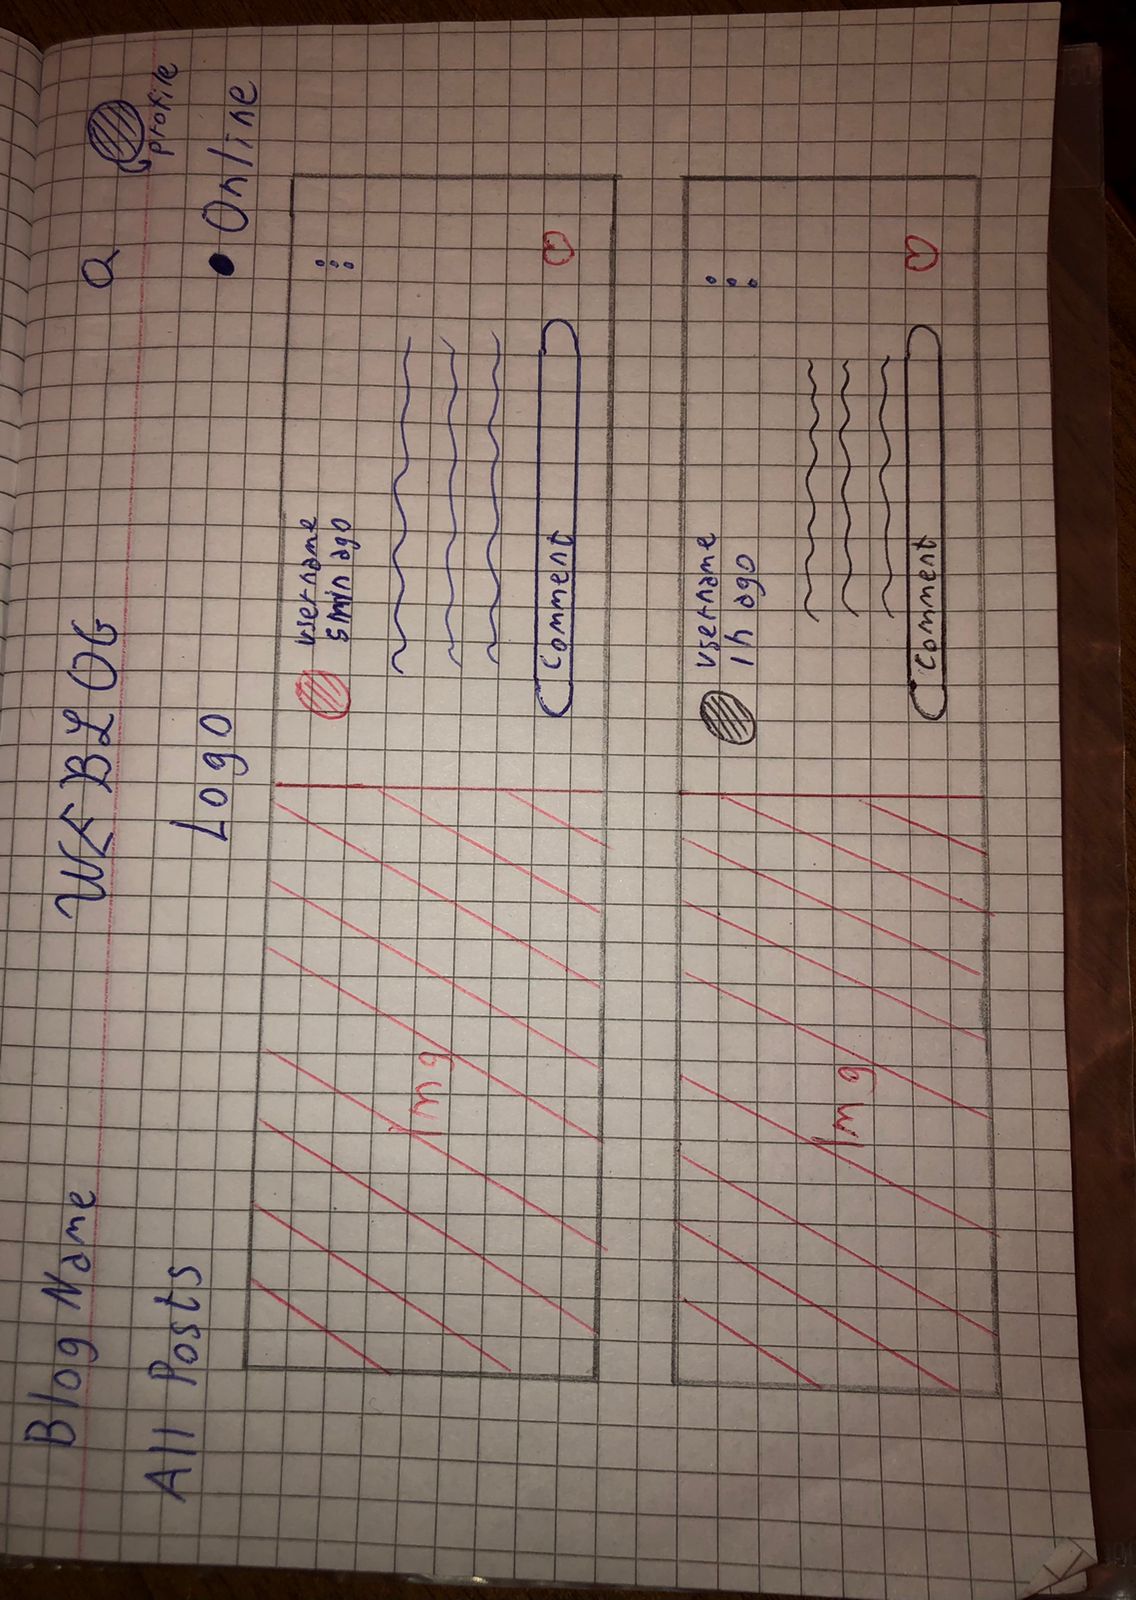 Blog Name
WEBLOG
Q
profile
All Posts
Logo
Online
Img
username
5min ago
Comment
Img
username
1h ago
Comment